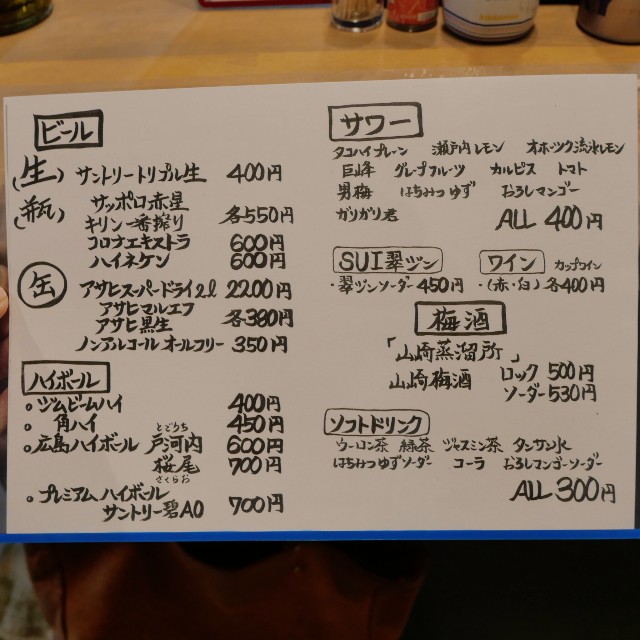 ビール
(生) サントリートリプル生 400円
(瓶) サッポロ赤星
キリン一番搾り 各550円
コロナエキストラ 600円
ハイネケン 600円
缶 アサヒスーパードライ2ℓ 2200円
アサヒマルエフ
アサヒ黒生 各380円
ノンアルコール オールフリー 350円
ハイボール
○ジムビームハイ 400円
○角ハイ 450円
とごうち
○広島ハイボール 戸河内 600円
桜尾 700円
さくらお
○プレミアムハイボール
サントリー碧AO 700円
サワー
タコハイプレーン 瀬戸内レモン オホーツク流氷レモン
巨峰 グレープフルーツ カルピス トマト
男梅 はちみつゆず おろしマンゴー
ガリガリ君 ALL 400円
SUI翠ジン
・翠ジンソーダー 450円
ワイン カップワイン
・(赤・白) 各400円
梅酒
「山崎蒸溜所」
山崎梅酒 ロック 500円
ソーダー 530円
ソフトドリンク
ウーロン茶 緑茶 ジャスミン茶 タンサン水
はちみつゆずソーダー コーラ おろしマンゴーソーダー
ALL 300円